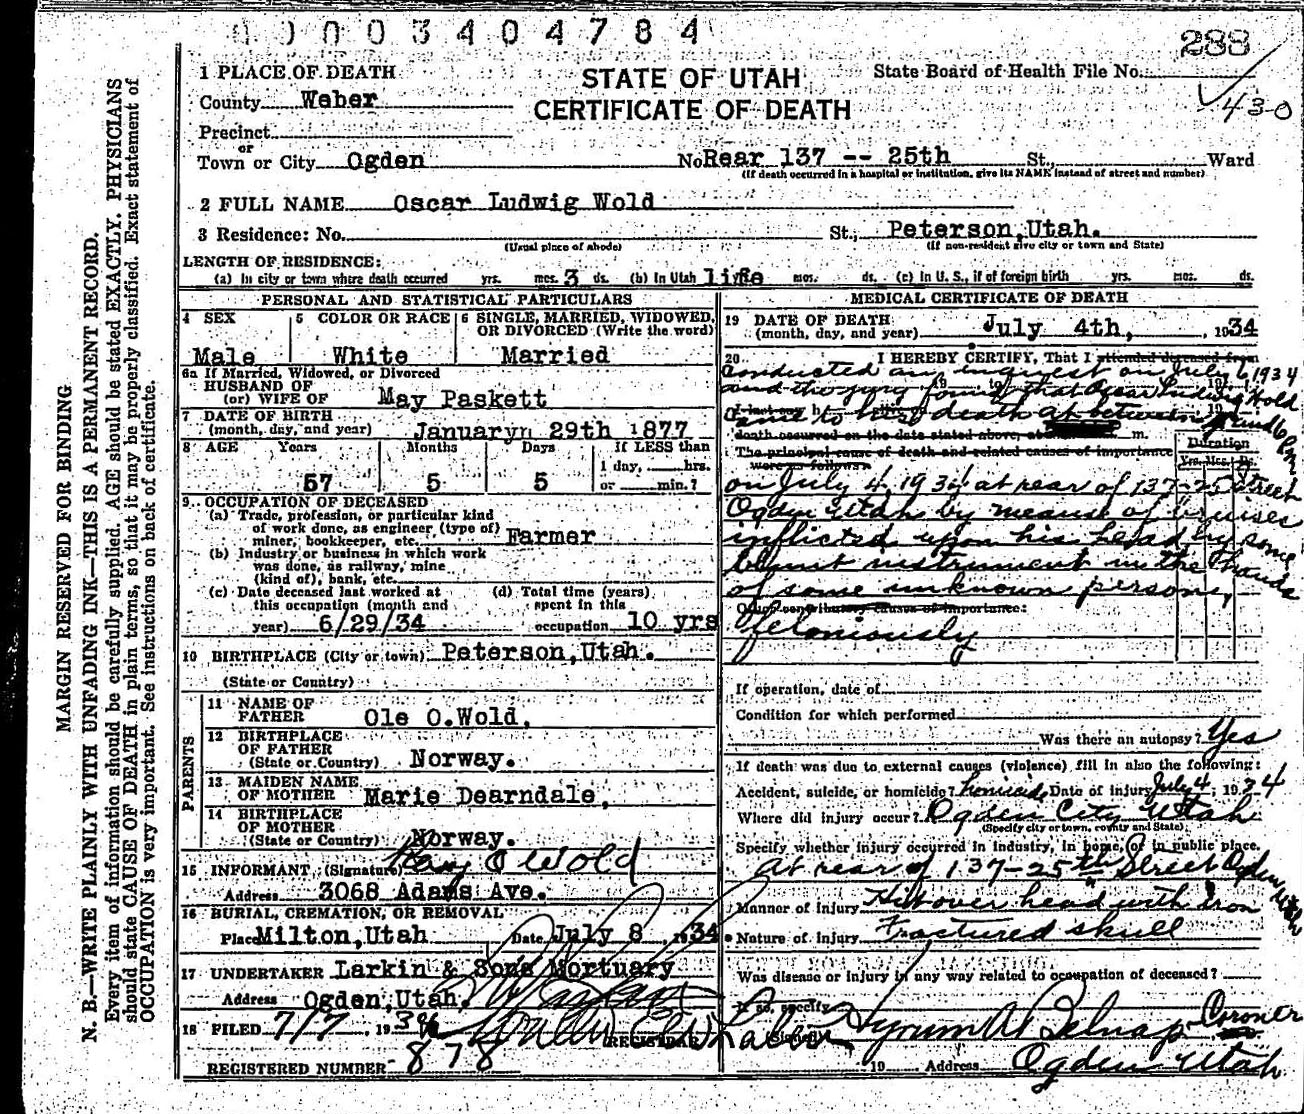 00003404784
288
430
STATE OF UTAH
CERTIFICATE OF DEATH
State Board of Health File No.
1 PLACE OF DEATH
County Weber
Precinct
or
Town or City Ogden No Rear 137 -- 25th St., Ward
(If death occurred in a hospital or institution, give its NAME instead of street and number)
2 FULL NAME Oscar Ludwig Wold
3 Residence: No. St., Peterson,Utah.
(Usual place of abode) (If non-resident give city or town and State)
LENGTH OF RESIDENCE:
(a) In city or town where death occurred yrs. mos. 3 ds. (b) In Utah life mos. ds. (c) In U. S., if of foreign birth yrs. mos. ds.
PERSONAL AND STATISTICAL PARTICULARS
4 SEX
Male
5 COLOR OR RACE
White
6 SINGLE, MARRIED, WIDOWED, OR DIVORCED (Write the word)
Married
6a If Married, Widowed, or Divorced
HUSBAND OF
(or) WIFE OF May Paskett
7 DATE OF BIRTH
(month, day, and year) Januaryn 29th 1877
8 AGE Years Months Days If LESS than
1 day, hrs.
57 5 5 or min.?
9. OCCUPATION OF DECEASED
(a) Trade, profession, or particular kind
of work done, as engineer (type of)
miner, bookkeeper, etc. Farmer
(b) Industry or business in which work
was done, as railway, mine
(kind of), bank, etc.
(c) Date deceased last worked at
this occupation (month and
year) 6/29/34
(d) Total time (years)
spent in this
occupation 10 yrs
10 BIRTHPLACE (City or town) Peterson,Utah.
(State or Country)
PARENTS
11 NAME OF
FATHER Ole O.Wold.
12 BIRTHPLACE
OF FATHER
(State or Country) Norway.
13 MAIDEN NAME
OF MOTHER Marie Dearndale,
14 BIRTHPLACE
OF MOTHER
(State or Country) Norway.
15 INFORMANT (Signature) Ray O Wold
Address 3068 Adams Ave.
16 BURIAL, CREMATION, OR REMOVAL
Place Milton,Utah Date July 8 1934
17 UNDERTAKER Larkin & Sons Mortuary
Address Ogden,Utah.
18 FILED 7/7, 1934
REGISTRAR
REGISTERED NUMBER 878
MEDICAL CERTIFICATE OF DEATH
19 DATE OF DEATH
(month, day, and year) July 4th, 1934
20 I HEREBY CERTIFY, That I attended deceased from
conducted an inquest on July 6 1934
and the jury found that Oscar Ludwig Wold
came to his death at between and 6 Pm
death occurred on the date stated above, at m.
The principal cause of death and related causes of importance
were as follows:
Duration
Yrs. Mos. Ds.
on July 4, 1934 at rear of 137-25 Street
Ogden Utah by means of bruises
inflicted upon his head by some
blunt instrument in the hands
of some unknown person,
Other contributory causes of importance:
feloniously
If operation, date of
Condition for which performed
Was there an autopsy? Yes
If death was due to external causes (violence) fill in also the following:
Accident, suicide, or homicide? homicide Date of injury July 4, 1934
Where did injury occur? Ogden City Utah
(Specify city or town, county and State)
Specify whether injury occurred in industry, in home, or in public place.
At rear of 137-25th Street Ogden Utah
Manner of Injury Hit over head with iron
Nature of Injury Fractured skull
Was disease or injury in any way related to occupation of deceased?
If so, specify
(Signed) Hyrum A Belnap Coroner
19 Address Ogden Utah
MARGIN RESERVED FOR BINDING
N. B.—WRITE PLAINLY WITH UNFADING INK—THIS IS A PERMANENT RECORD.
Every item of information should be carefully supplied. AGE should be stated EXACTLY. PHYSICIANS
should state CAUSE OF DEATH in plain terms, so that it may be properly classified. Exact statement of
OCCUPATION is very important. See instructions on back of certificate.